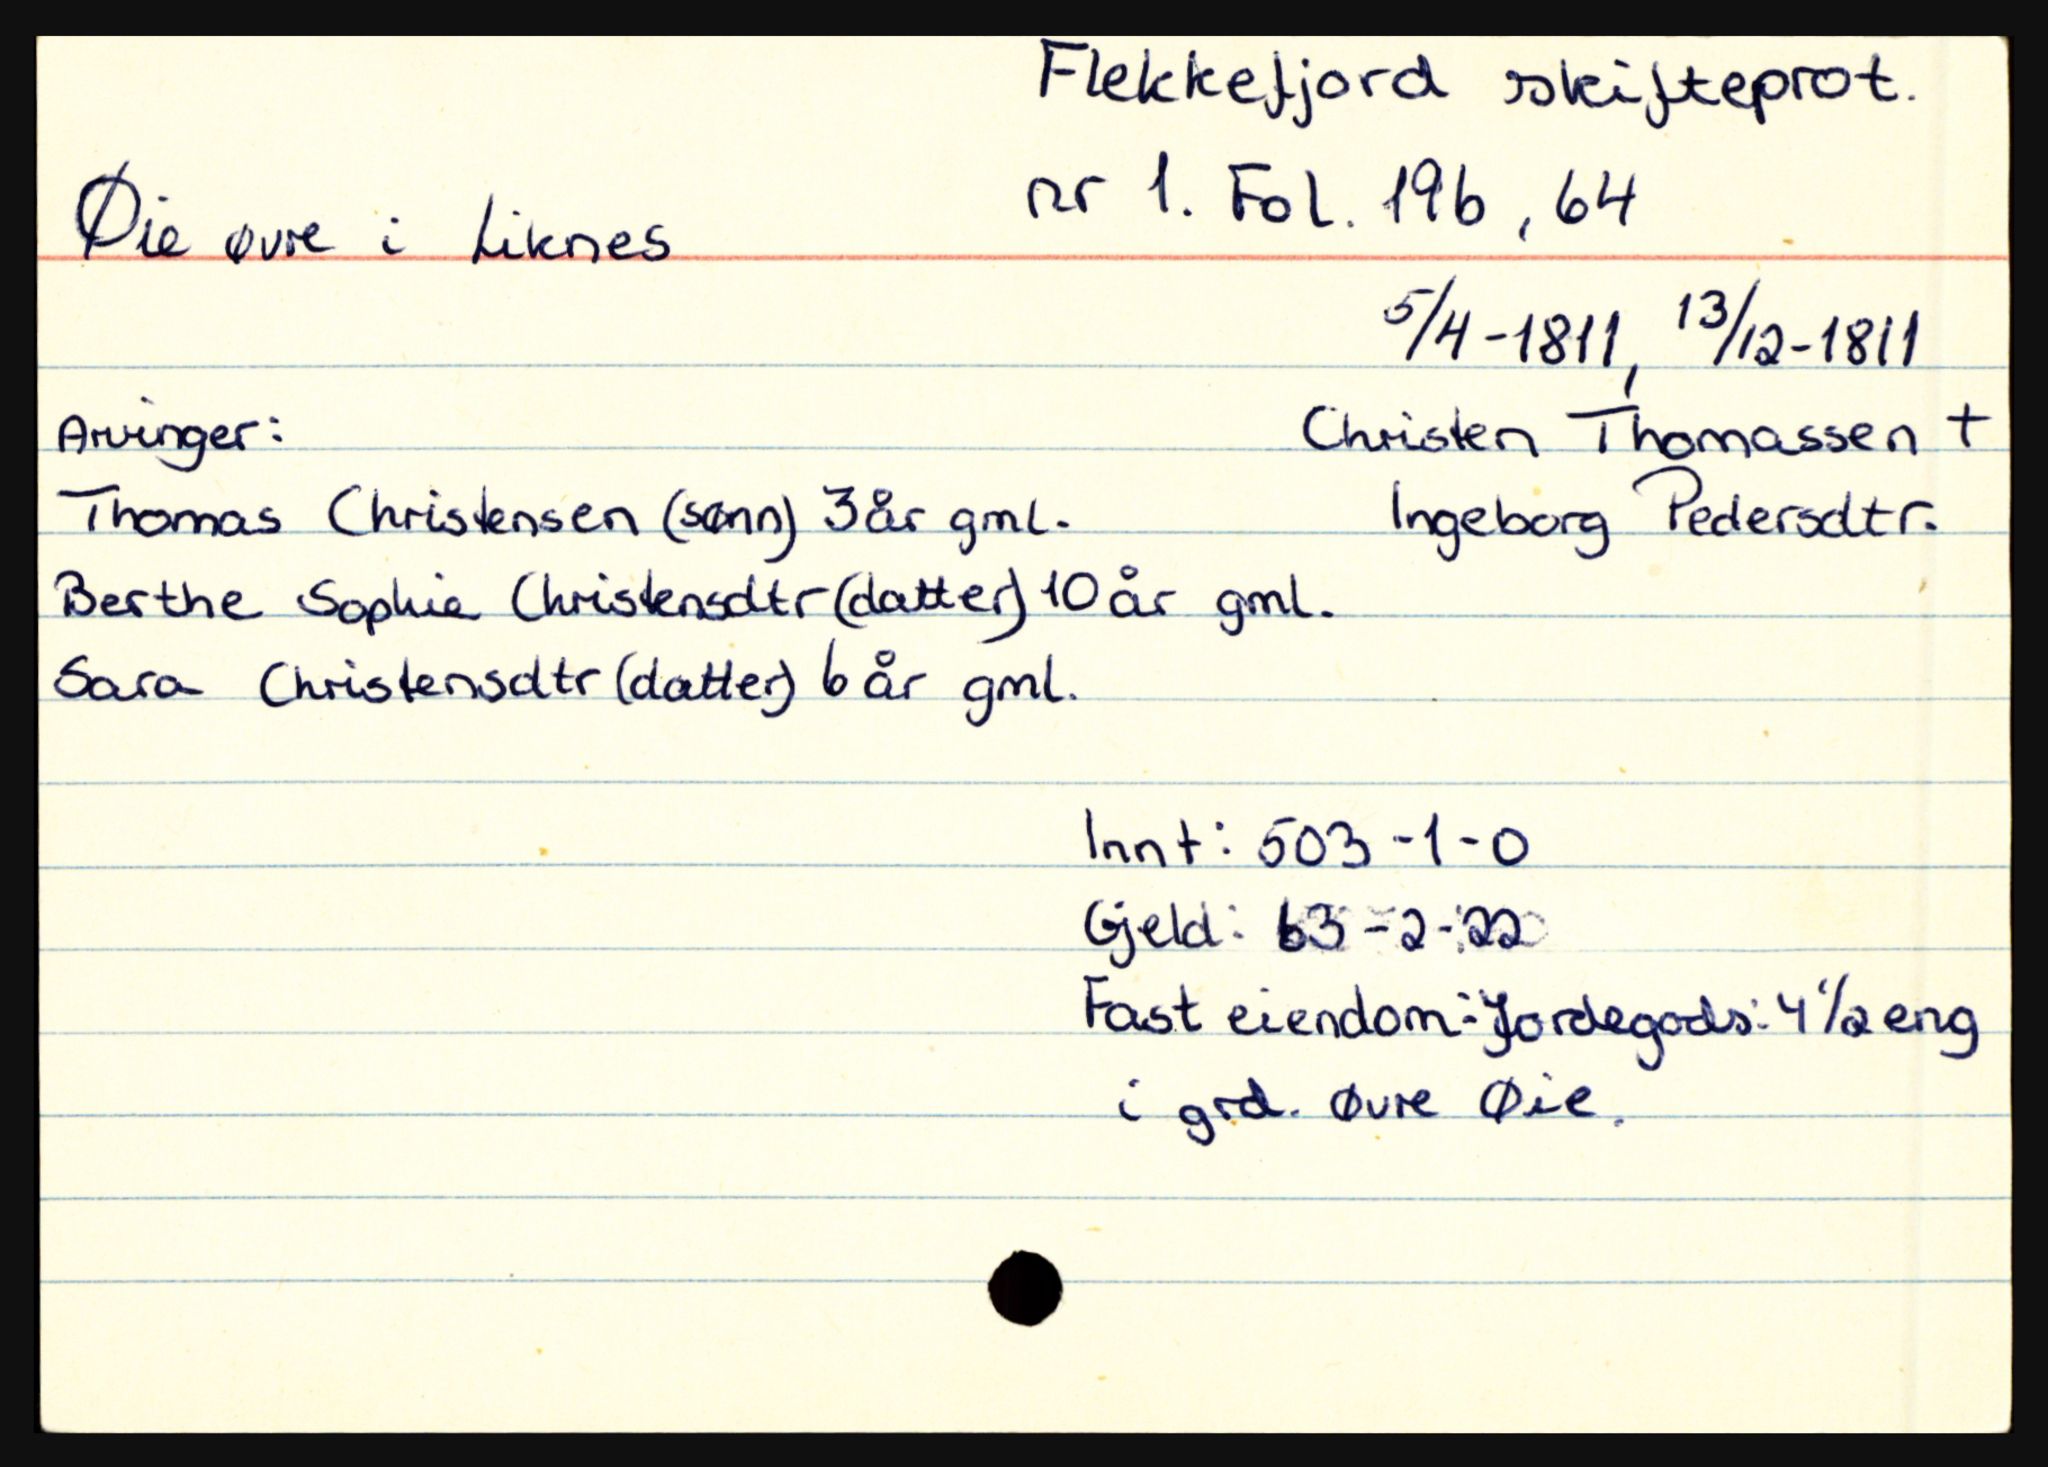 Flekkefjord skifteprot.
nr 1. Fol. 19b, 64
Øie øvre i Liknes
5/4-1811, 13/12-1811
Arvinger:
Christen Thomassen +
Thomas Christensen (sønn) 3 år gml.
Ingeborg Pedersdtr.
Berthe Sophie Christensdtr (datter) 10 år gml.
Sara Christensdtr (datter) 6 år gml.
Innt: 503-1-0
Gjeld: 63-2-22
Fast eiendom: Jordegods: 4 1/2 eng
i grd. øvre Øie.